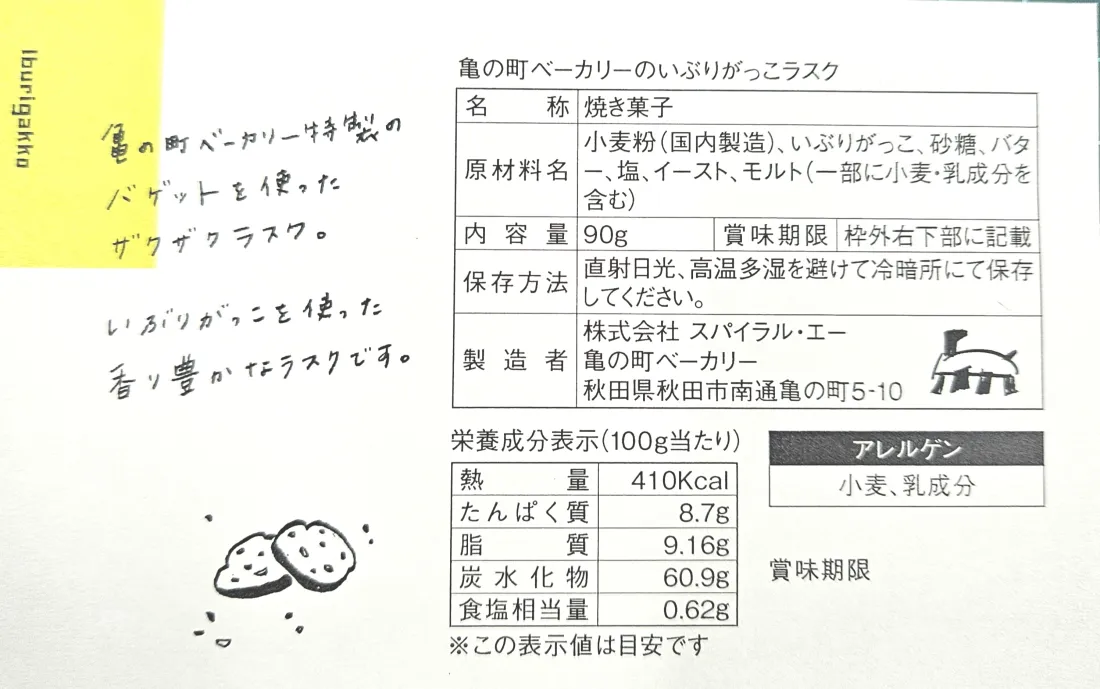 Iburigakko
亀の町ベーカリー特製の
バゲットを使った
ザクザクラスク。
いぶりがっこを使った
香り豊かなラスクです。
亀の町ベーカリーのいぶりがっこラスク
名称 焼き菓子
原材料名 小麦粉(国内製造)、いぶりがっこ、砂糖、バタ
ー、塩、イースト、モルト(一部に小麦・乳成分を
含む)
内容量 90g 賞味期限 枠外右下部に記載
保存方法 直射日光、高温多湿を避けて冷暗所にて保存
してください。
製造者 株式会社 スパイラル・エー
亀の町ベーカリー
秋田県秋田市南通亀の町5-10
栄養成分表示(100g当たり)
熱量 410Kcal
たんぱく質 8.7g
脂質 9.16g
炭水化物 60.9g
食塩相当量 0.62g
※この表示値は目安です
アレルゲン
小麦、乳成分
賞味期限